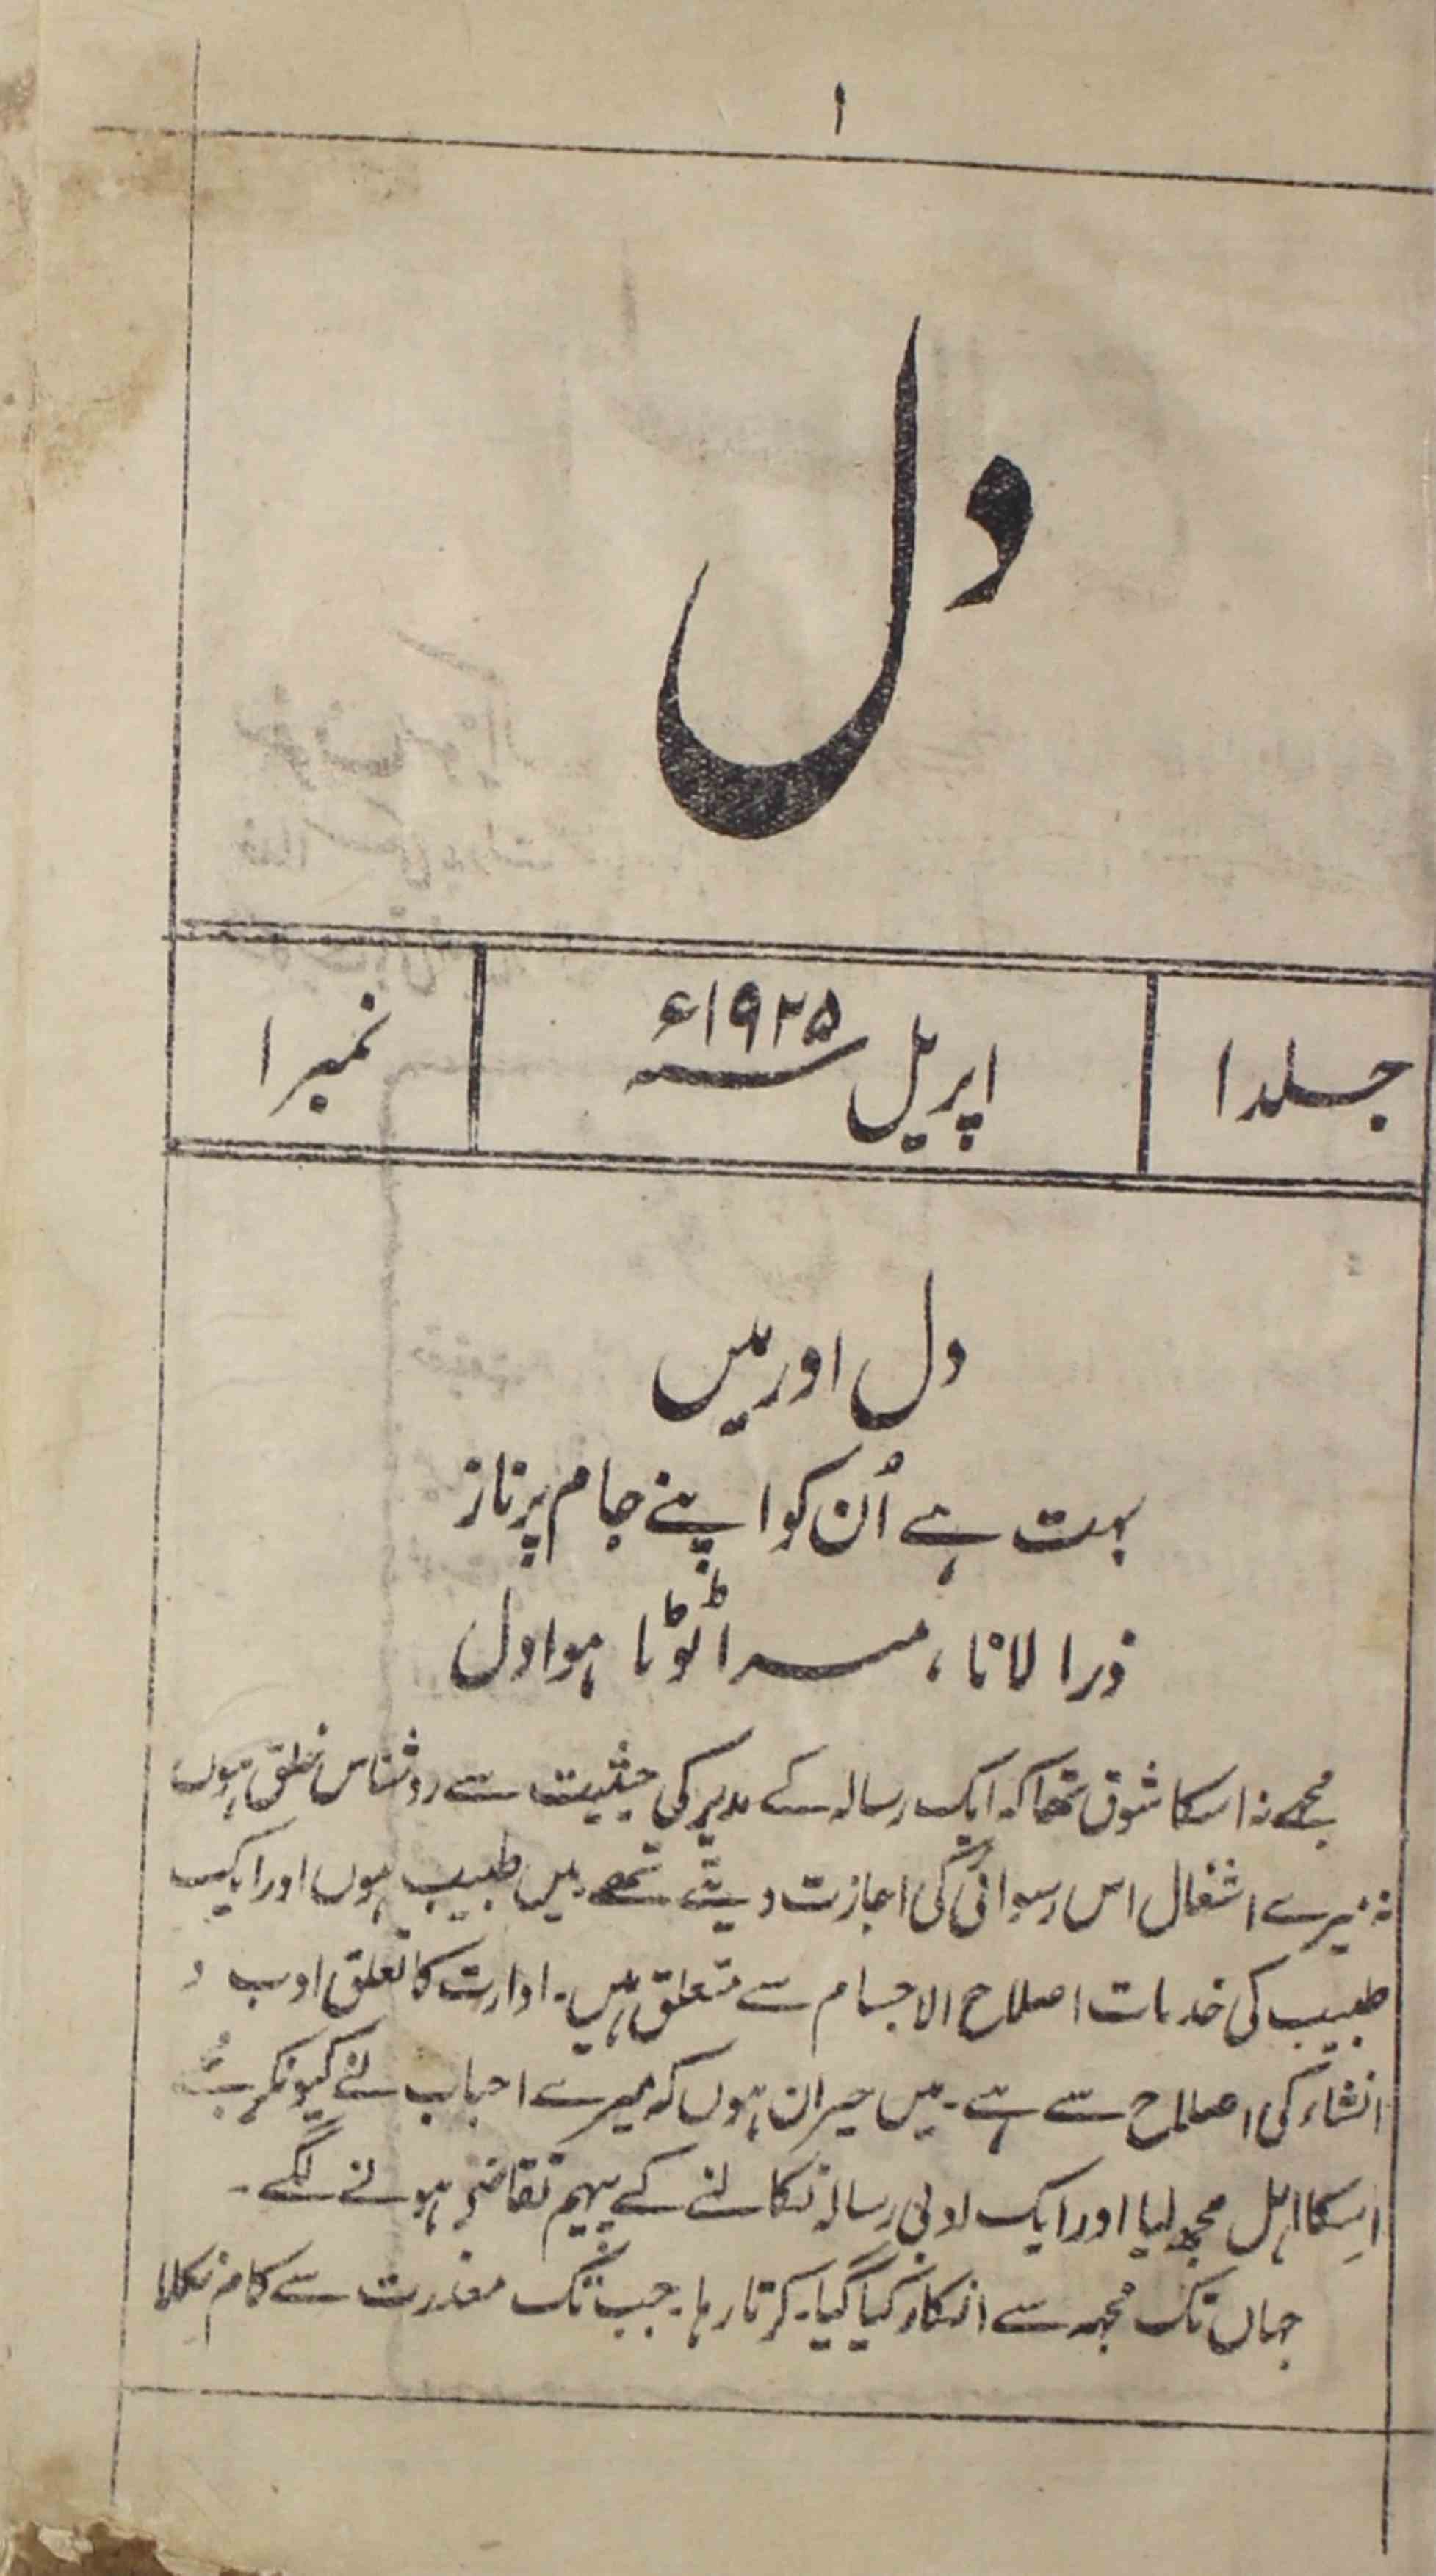 ۱
دل
جلد ۱
اپریل سنہ ۱۹۲۵ء
نمبر ۱
دل اور میں
بہت ہے اُن کو اپنے جام پر ناز
ذرا لانا، مرا ٹوٹا ہوا دل
مجھے نہ اسکا شوق تھا کہ ایک رسالہ کے مدیر کی حیثیت سے روشناس خلق ہوں
نہ میرے اشغال اس رسوائی کی اجازت دیتے تھے۔ میں طبیب ہوں اور ایک
طبیب کی خدمات اصلاح الاجسام سے متعلق ہیں۔ ادارت کا تعلق ادب و
انشاء کی اصلاح سے ہے۔ میں حیران ہوں کہ میرے احباب نے کیونکر
اِسکا اہل سمجھ لیا اور ایک ادبی رسالہ نکالنے کے پیہم تقاضے ہونے لگے۔
جہاں تک مجھ سے انکار کیا گیا۔ کرتا رہا۔ جب تک معذرت سے کام نکلا